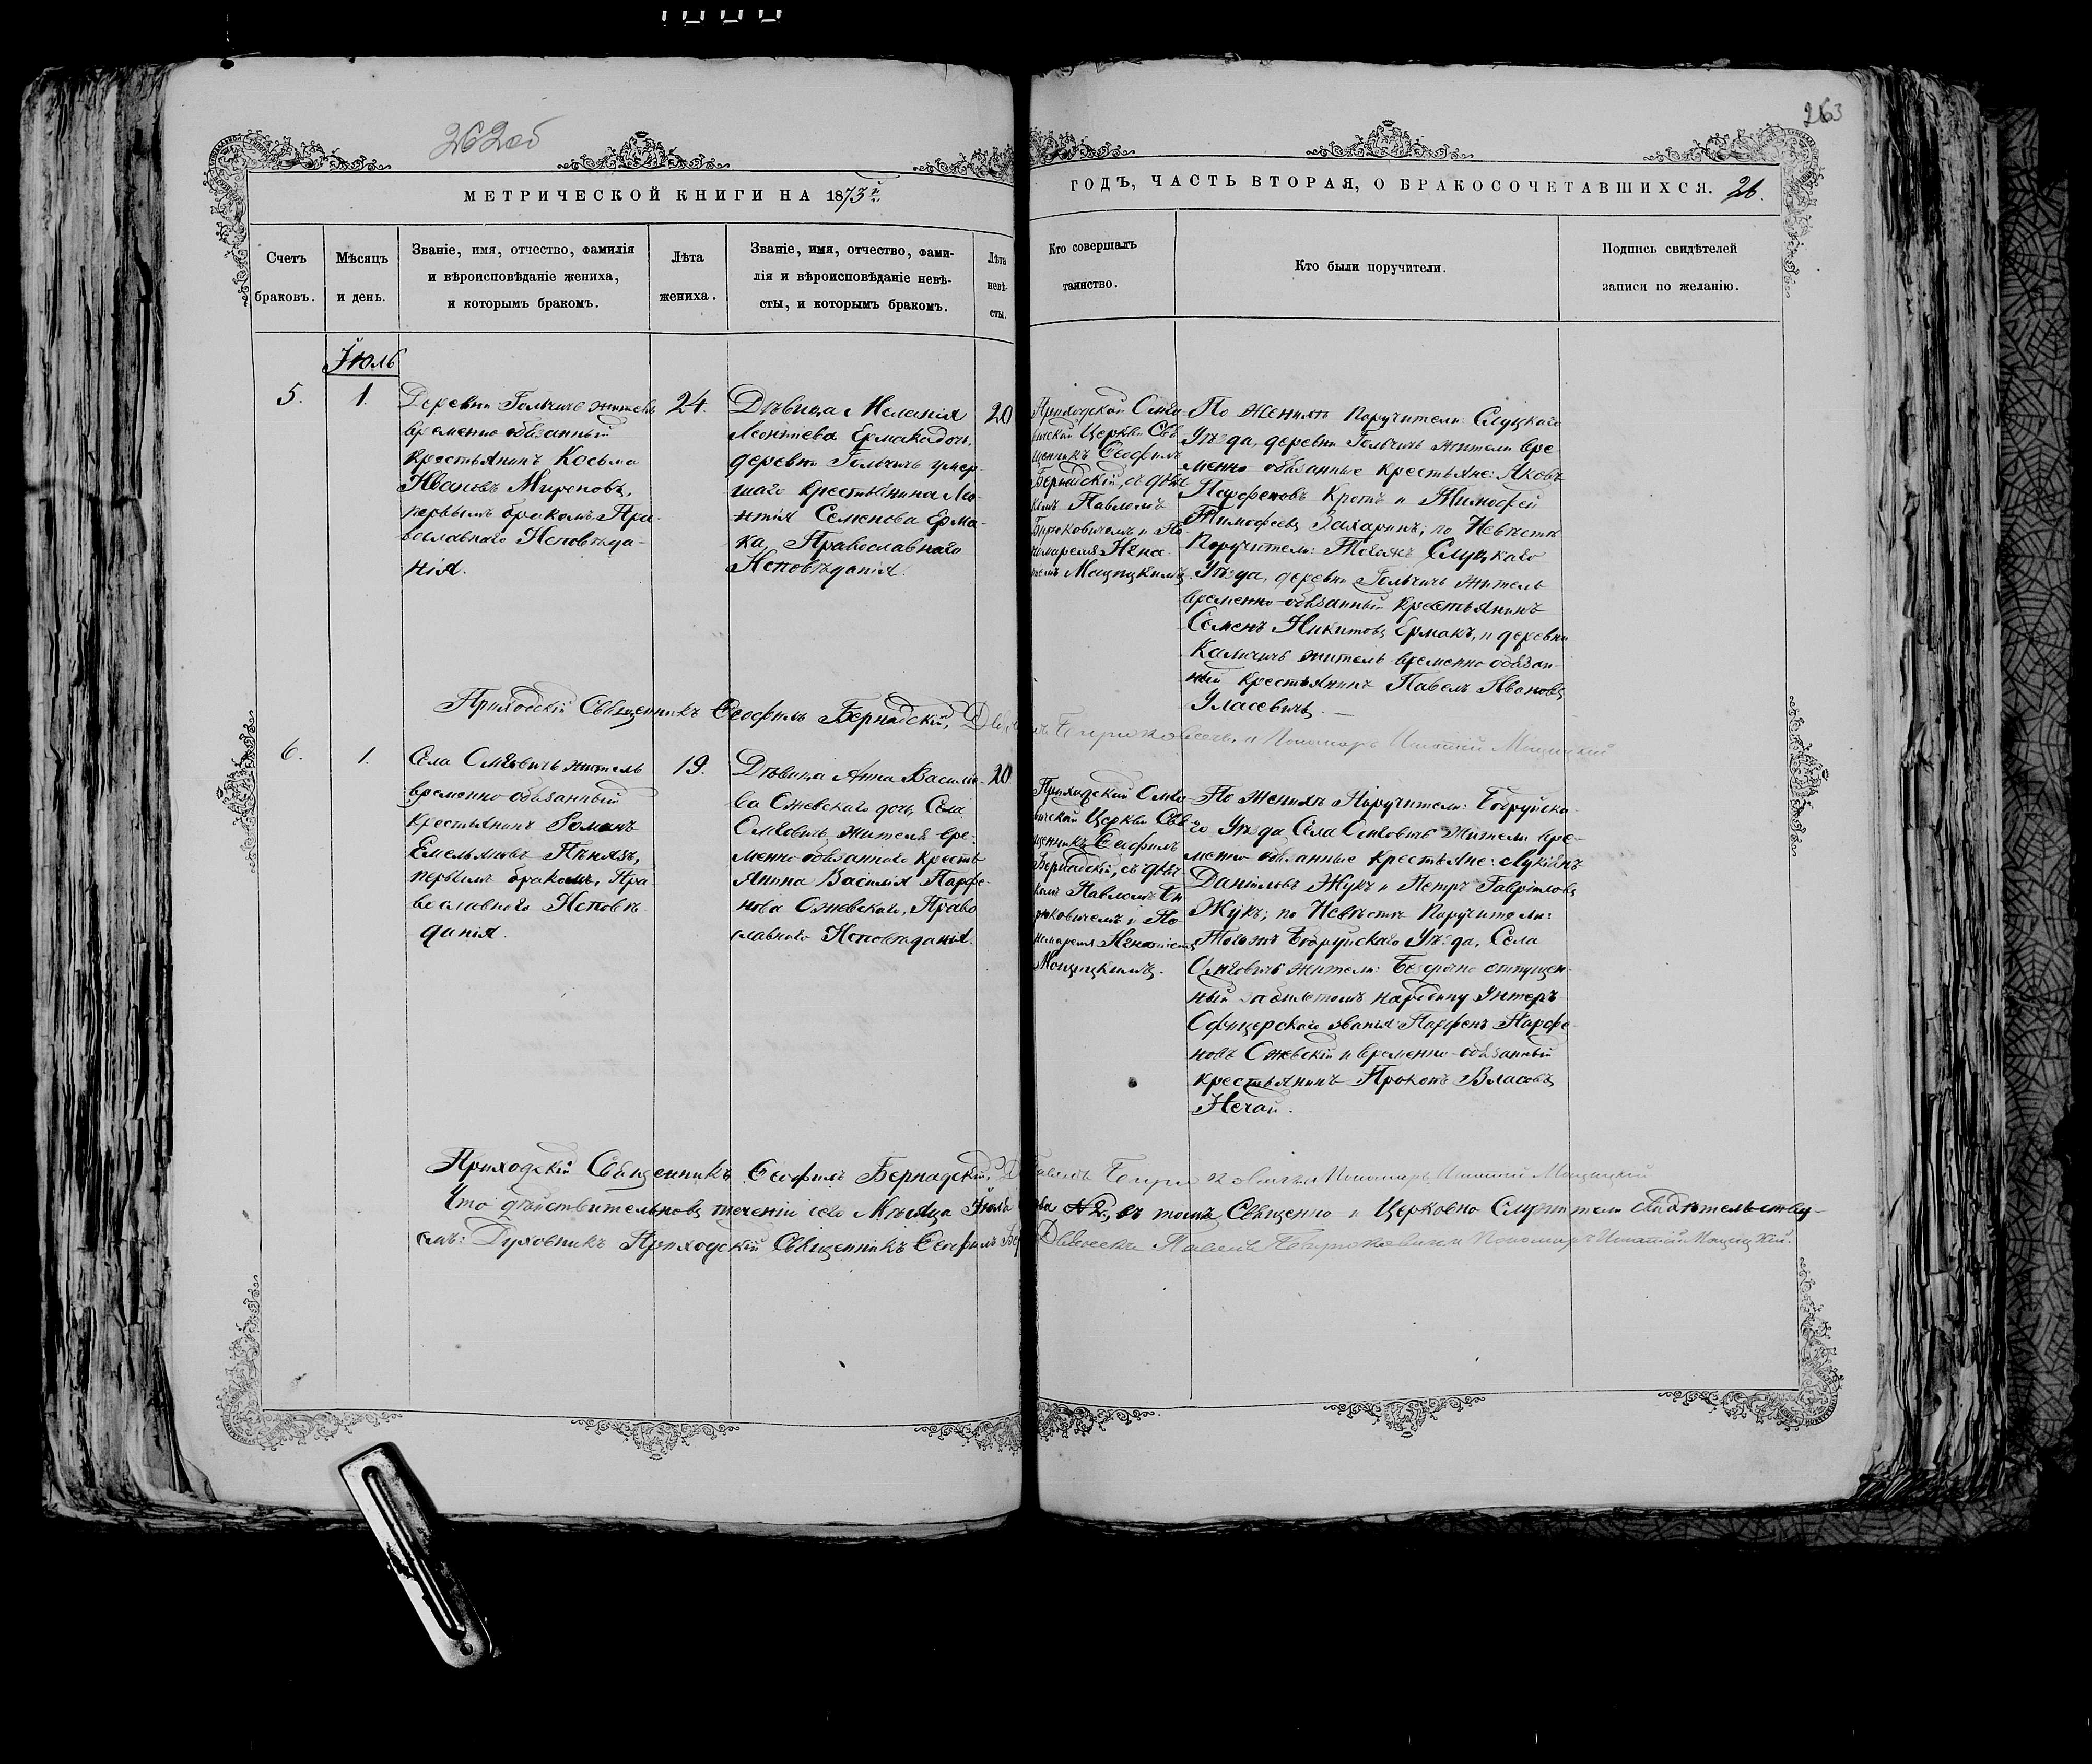 262об
263
МЕТРИЧЕСКОЙ КНИГИ НА 1873й
ГОДЪ, ЧАСТЬ ВТОРАЯ, О БРАКОСОЧЕТАВШИХСЯ. 26.
Счетъ
браковъ.
Мѣсяцъ
и день.
Званіе, имя, отчество, фамилія
и вѣроисповѣданіе жениха,
и которымъ бракомъ.
Лѣта
жениха.
Званіе, имя, отчество, фами-
лія и вѣроисповѣданіе невѣ-
сты, и которымъ бракомъ.
Лѣта
невѣ-
сты.
Кто совершалъ
таинство.
Кто были поручители.
Подпись свидѣтелей
записи по желанію.
Іюль
5.
1.
Деревни Гольчичь житель
временно обязанный
крестьянинъ Косьма
Ивановъ Мироновъ,
первымъ бракомъ, Пра-
вославнаго Исповѣда-
нія.
24.
Дѣвица Меланія
Леонтіева Ермака дочь,
деревни Гольчичь умер-
шаго крестьянина Ле-
онтія Семенова Ерма-
ка, Православнаго
Исповѣданія.
20
Приходской
Церкви Свя-
щенникъ Ѳеофилъ
Бернадскій, съ дьяч-
комъ Павломъ
Бируковичемъ и По-
номаремъ
Мощицкимъ.
По женихѣ поручители: Слуцкаго
Уѣзда, деревни Гольчичь жители вре-
менно обязанные крестьяне: Яковъ
Парфеновъ Кротъ и Тимофей
Тимофеевъ Захаринъ; по Невѣстѣ
Поручители: Тогожъ Слуцкаго
Уѣзда, деревни Гольчичь житель
временно-обязанный крестьянинъ
Семенъ Никитовъ Ермакъ, и деревни
Калчичь житель временно обязан-
ный крестьянинъ Павелъ Ивановъ
Уласевичъ.
Приходскій Священникъ Ѳеофилъ Бернадскій,
Бируковичъ, и Пономарь Игнатій Мощицкій
6.
1.
Села житель
временно обязанный
крестьянинъ Романъ
Емельяновъ
первымъ бракомъ, Пра-
вославнаго Исповѣ-
данія.
19.
Дѣвица Анна Василіе-
ва Ожевскаго дочь, Села
жителя вре-
менно обязаннаго кресть-
янина Василія Парфе-
нова Ожевскаго, Право-
славнаго Исповѣданія.
20.
Приходской
Церкви Свя-
щенникъ Ѳеофилъ
Бернадскій, съ дьяч-
комъ Павломъ Би-
руковичемъ и По-
номаремъ
Мощицкимъ.
По женихѣ Поручители: Бобруйска-
го Уѣзда, Села жители вре-
менно обязанные крестьяне: Лукіянъ
Даніиловъ Жукъ и Петръ Гавріиловъ
Жукъ; по Невѣстѣ Поручители:
Тогожъ Бобруйскаго Уѣзда, Села
жители: Безсрочно отпущен-
ный за билетомъ народину Унтеръ
Офицерскаго званія Парфенъ Парфе-
новъ Ожевскій и временно-обязанный
крестьянинъ Прокопъ Власовъ
Нечай.
Приходскій Священникъ Ѳеофилъ Бернадскій,
Пономарь Игнатій Мощицкій
Что дѣйствительно въ теченіи сего Мѣсяца Іюля
№ 2, въ томъ Священно и Церковно Служители свидѣтельству-
емъ: Духовникъ Приходскій Священникъ Ѳеофилъ
Дьячекъ Павелъ Бируковичъ и Пономарь Игнатій Мощицкій.